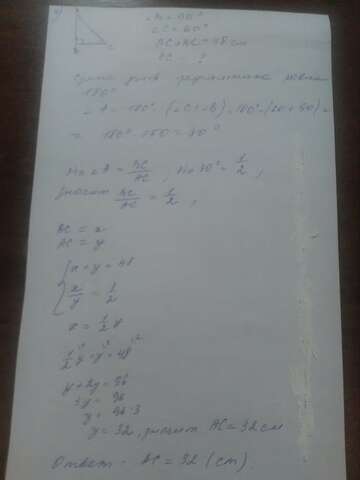 ∠B = 90°
∠C = 60°
BC + AC = 48 см
AC - ?
Сумма углов треугольника равна
180°
∠A = 180° - (∠C + ∠B) = 180° - (60 + 90) =
= 180° - 150 = 30°
sin ∠A = BC/AC, sin 30° = 1/2,
значит BC/AC = 1/2,
BC = x
AC = y
{ x + y = 48
x/y = 1/2
x = 1/2 y
1/2 y + y = 48
y + 2y = 96
3y = 96
y = 96 : 3
y = 32, значит AC = 32 см
Ответ - AC = 32 (см).